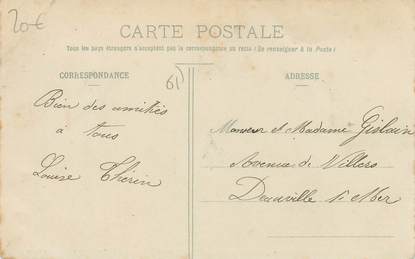 20€
CARTE POSTALE
Tous les pays étrangers n'acceptent pas la correspondance au recto (Se renseigner à la Poste)
CORRESPONDANCE
61
ADRESSE
Bien des amitiés
à tous
Louise Thérin
Monsieur et Madame Gislain
Avenue de Villers
Deauville s. Mer